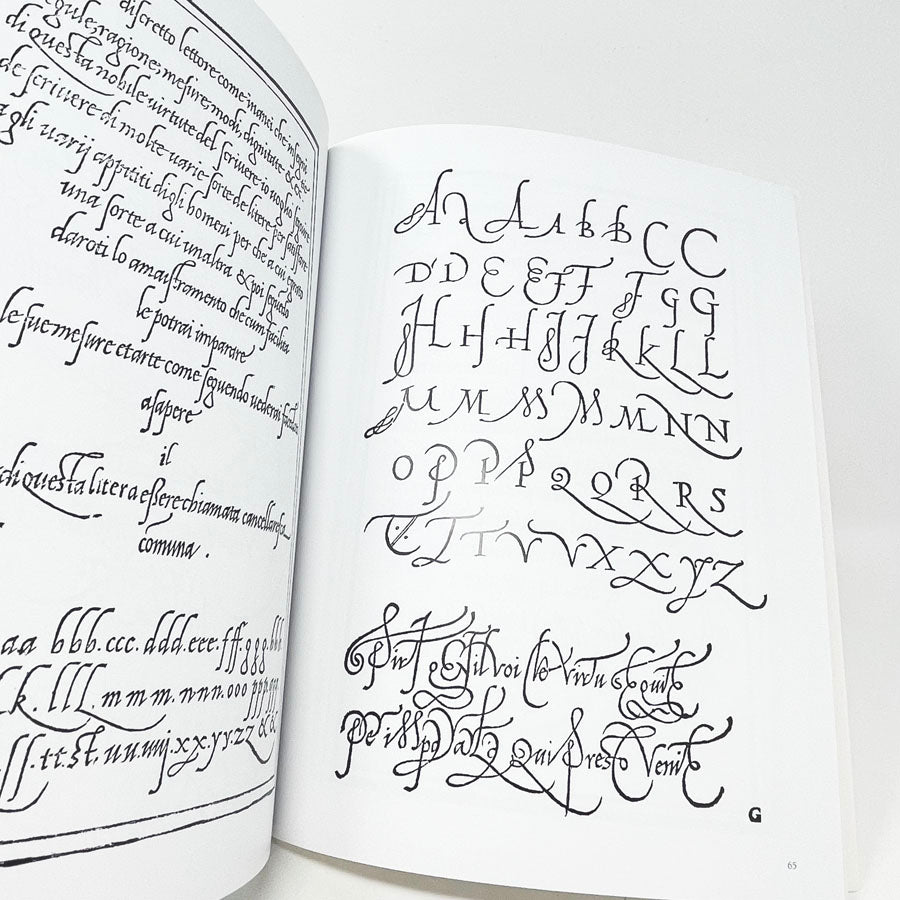 discretto lettore come inanci che insegni
egule, ragione, mesure, modi, dignitate &
di questa nobile uirtute del scriuere io uoglio seguire
de scriuere di molte uarie sorte de litere per satisfare
agli uarij appititi di gli homeni per che a cui è grato
una sorte a cui unaltra & poi seguendo
daroti lo amaistramento che cum facilita
le potrai imparare
le sue mesure et arte come seguendo uederai
a sapere
il
di questa litera essere chiamata cancellaresca
comuna .
aa bbb.ccc.ddd.eee.fff.ggg.hhh
k.lll.mmm.nnn.ooo ppp.
ſſ.tt.st.uu.uuij.xx.yy.zz &&
A A A A b b b C C
D D E E F F F G G
H H H H J J K k L L
M M M M M N N
O P P P P Q Q R R R S
T T T V V X X Y Z
Spirt Gētil voi che virtu Seguite
Per iMpdAtz Qui Presto Venite
G
65